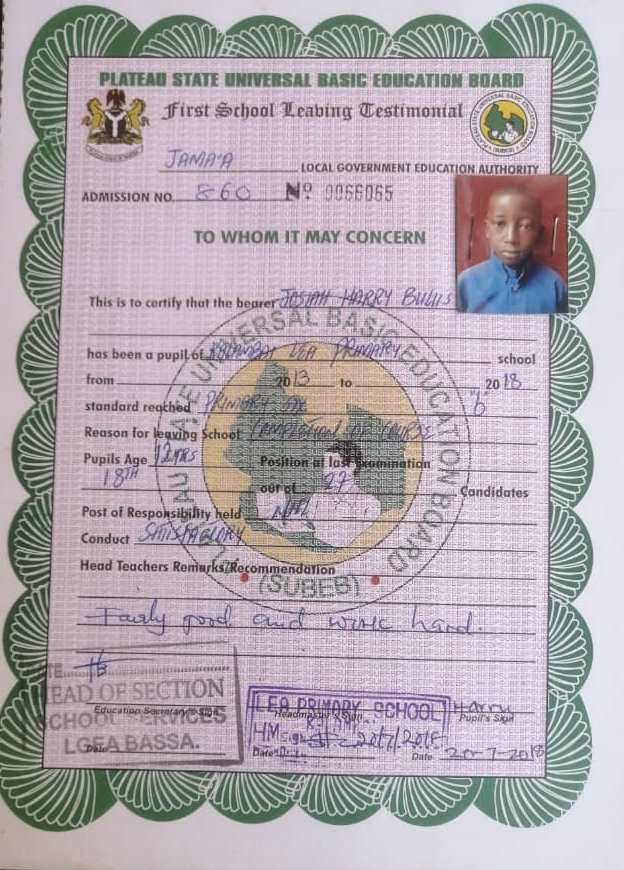 PLATEAU STATE UNIVERSAL BASIC EDUCATION BOARD
First School Leaving Testimonial
JAMA'A LOCAL GOVERNMENT EDUCATION AUTHORITY
ADMISSION NO. 860 Nº 0066065
TO WHOM IT MAY CONCERN
This is to certify that the bearer JOSIAH HARRY BULUS
has been a pupil of LEA PRIMARY school
from 2013 to 2018
standard reached PRIMARY SIX "6"
Reason for leaving School COMPLETION OF COURSE
Pupils Age 12YRS Position at last examination
18TH out of 27 Candidates
Post of Responsibility held
Conduct SATISFACTORY
Head Teachers Remarks/Recommendation
(SUBEB)
Fairly good and work hard.
HEAD OF SECTION
Education Secretary's Sign
SCHOOL SERVICES
LGEA BASSA.
Date
LEA PRIMARY SCHOOL
Headmaster's Sign
HM Sign 20/7/2018
Date
Harry
Pupil's Sign
Date 20-7-2018